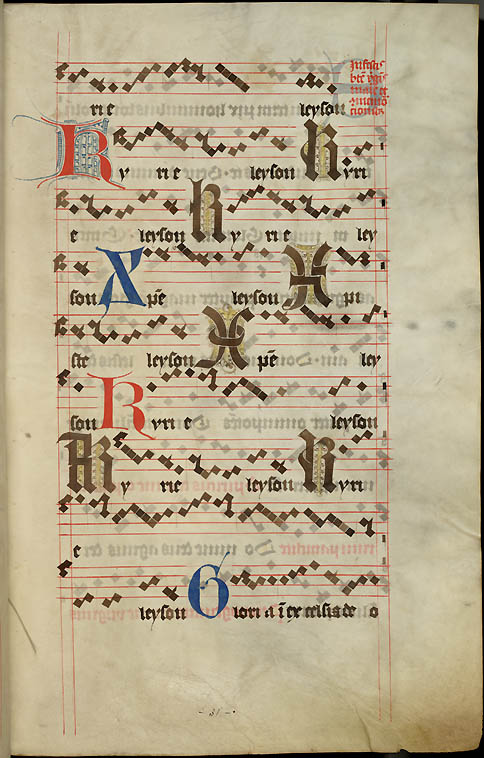 In festis
bte vgis
marie et
rie leyson
Kyrie leyson Kyri
e leyson Kyrie ley
son Xpe leyson Xpi
ste leyson Xpe ley
son Kyrie leyson
Kyrie leyson Kyri
e
leyson Gloria i excelsis deo
31